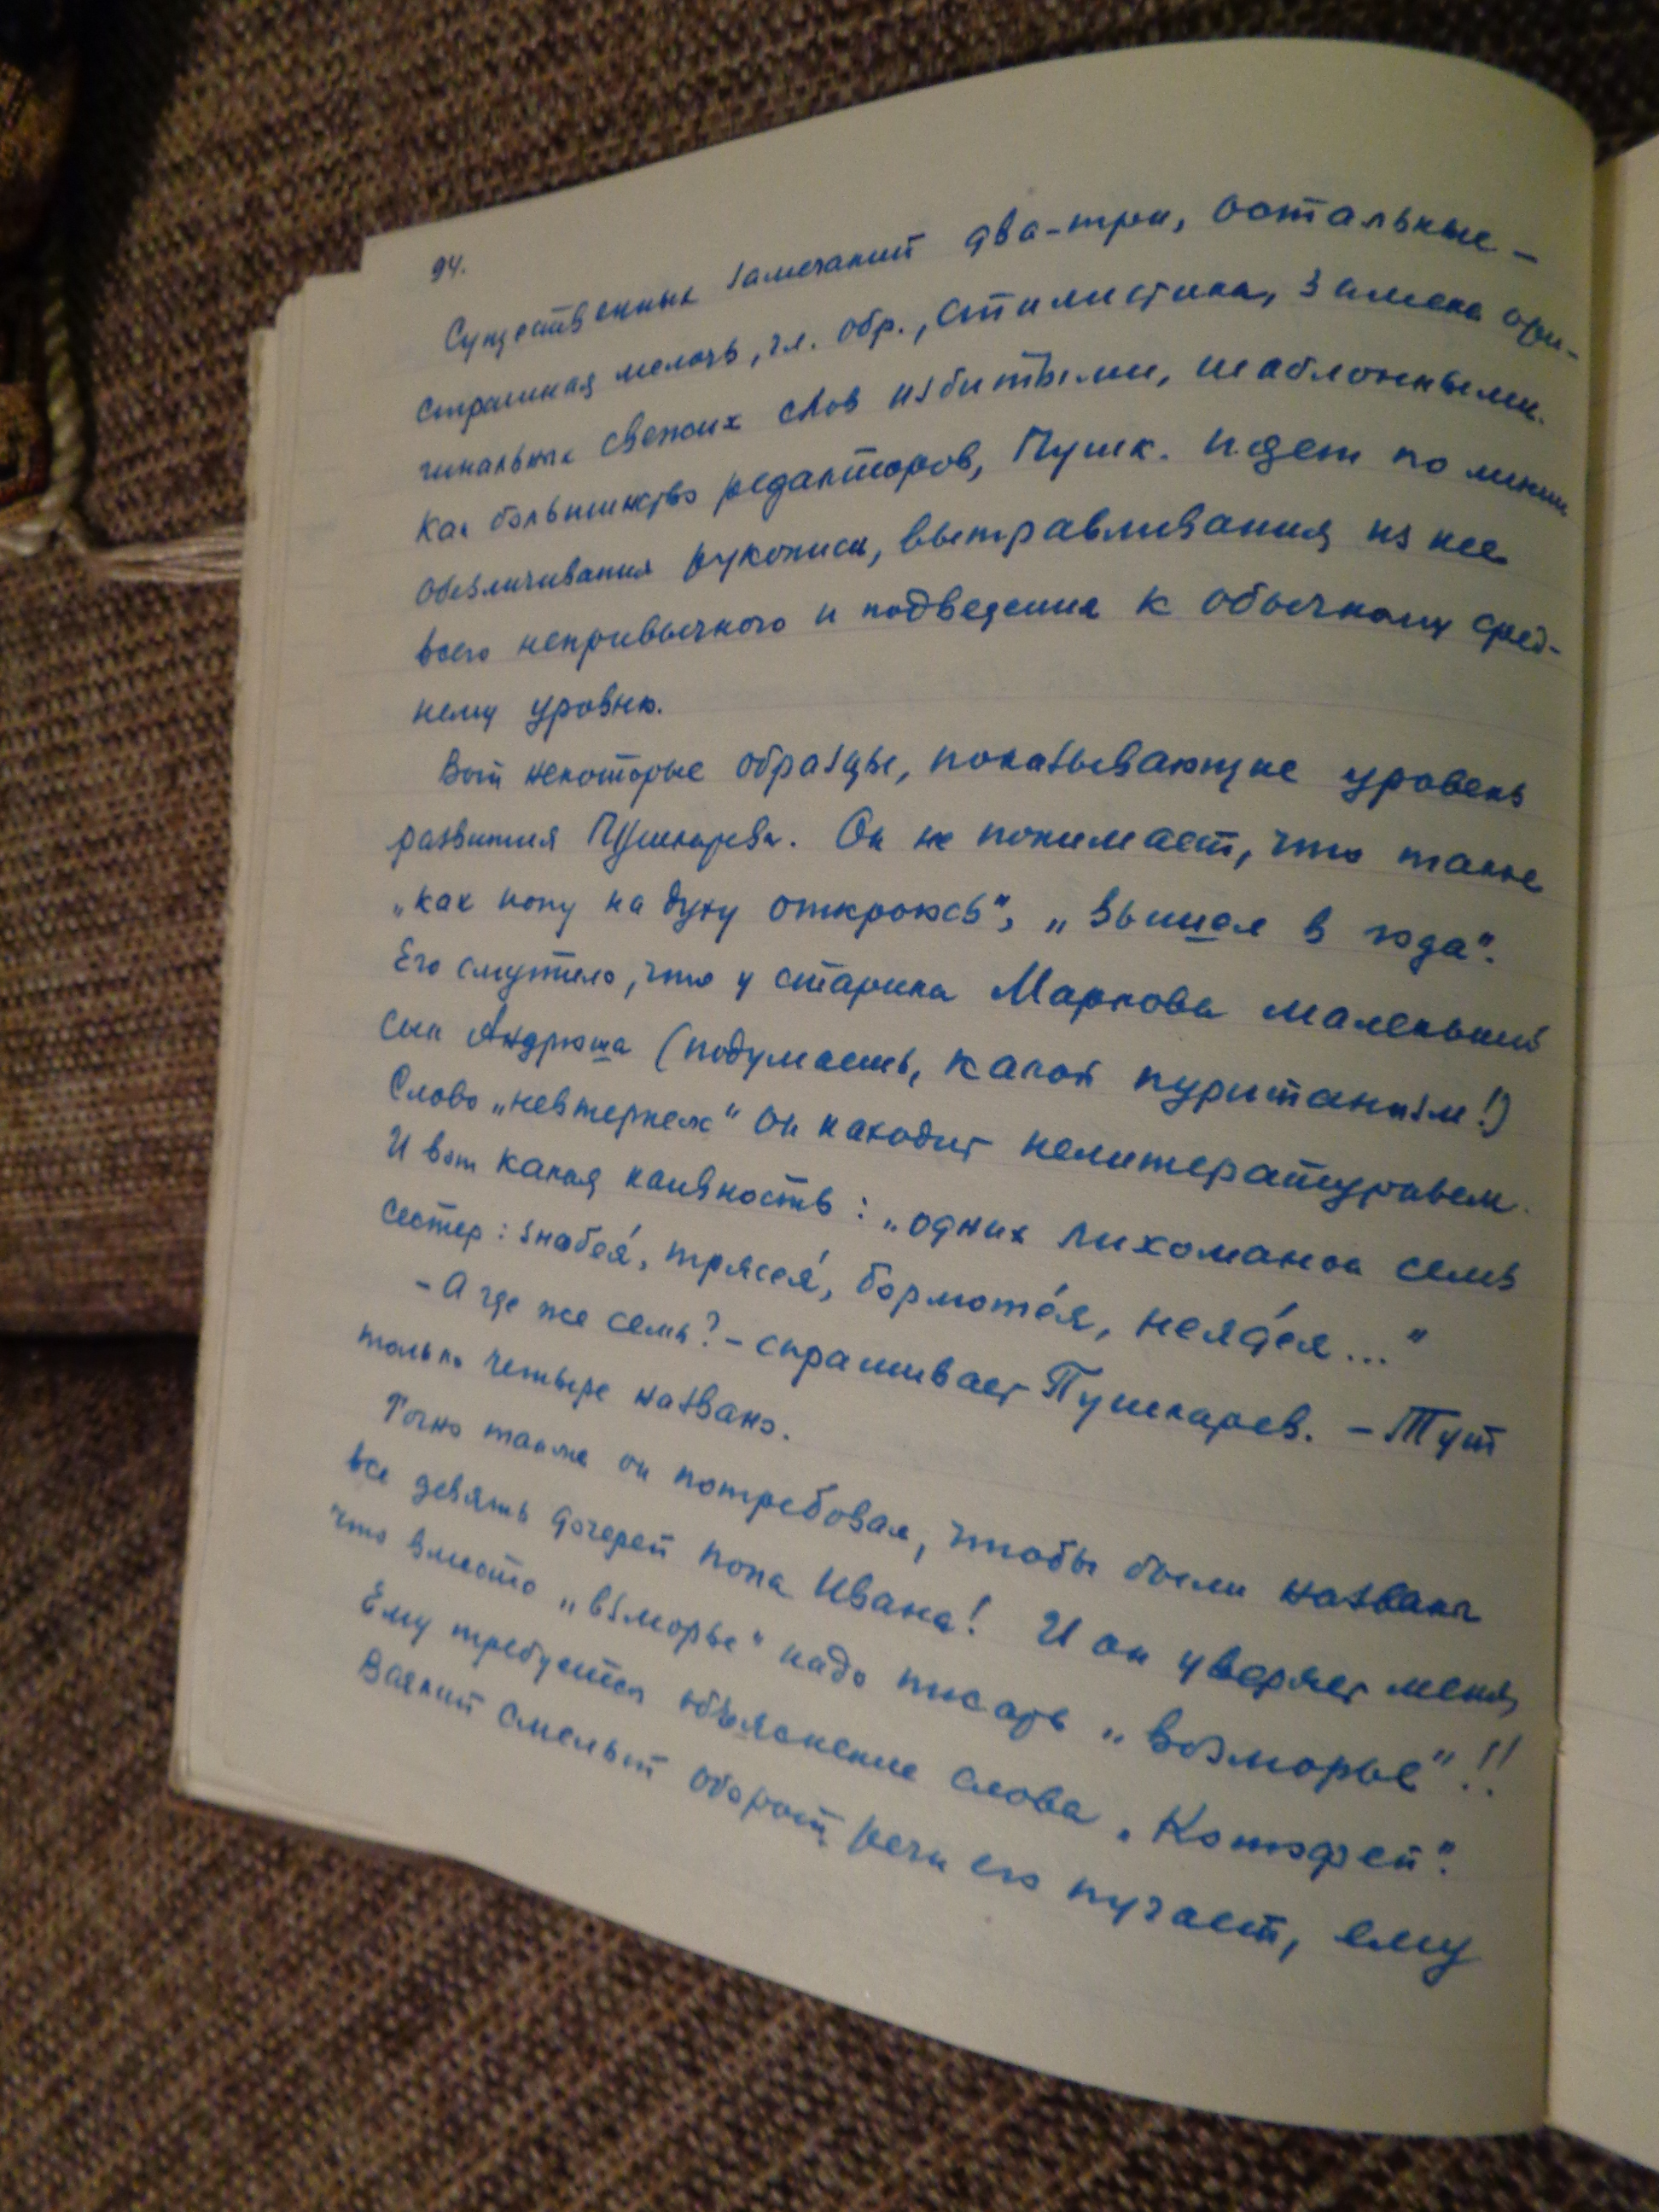 94.
Существенных замечаний два-три, остальные –
страшная мелочь, гл. обр., стилистика, замена ори-
гинальных свежих слов избитыми, шаблонными.
Как большинство редакторов, Пушк. идет по линии
обезличивания рукописи, вытравливания из нее
всего непривычного и подведения к обычному сред-
нему уровню.
Вот некоторые образцы, показывающие уровень
развития Пушкарева. Он не понимает, что такое
„как попу на духу откроюсь“, „вышел в года“.
Его смутило, что у старика Маркова маленький
сын Андрюша (подумаешь, какой пуританизм!)
Слово „невтерпеж“ он находит нелитературным.
И вот какая наивность: „одних лихоманок семь
сестер: знобе́я, трясея́, бормоте́я, неяде́я...“
– А где же семь? – спрашивает Пушкарев. – Тут
только четыре названо.
Точно также он потребовал, чтобы были названы
все девять дочерей попа Ивана! И он уверяет меня,
что вместо „взморье“ надо писать „возморье“!!
Ему требуется объяснение слова „Котофей“.
Всякий смелый оборот речи его пугает, ему